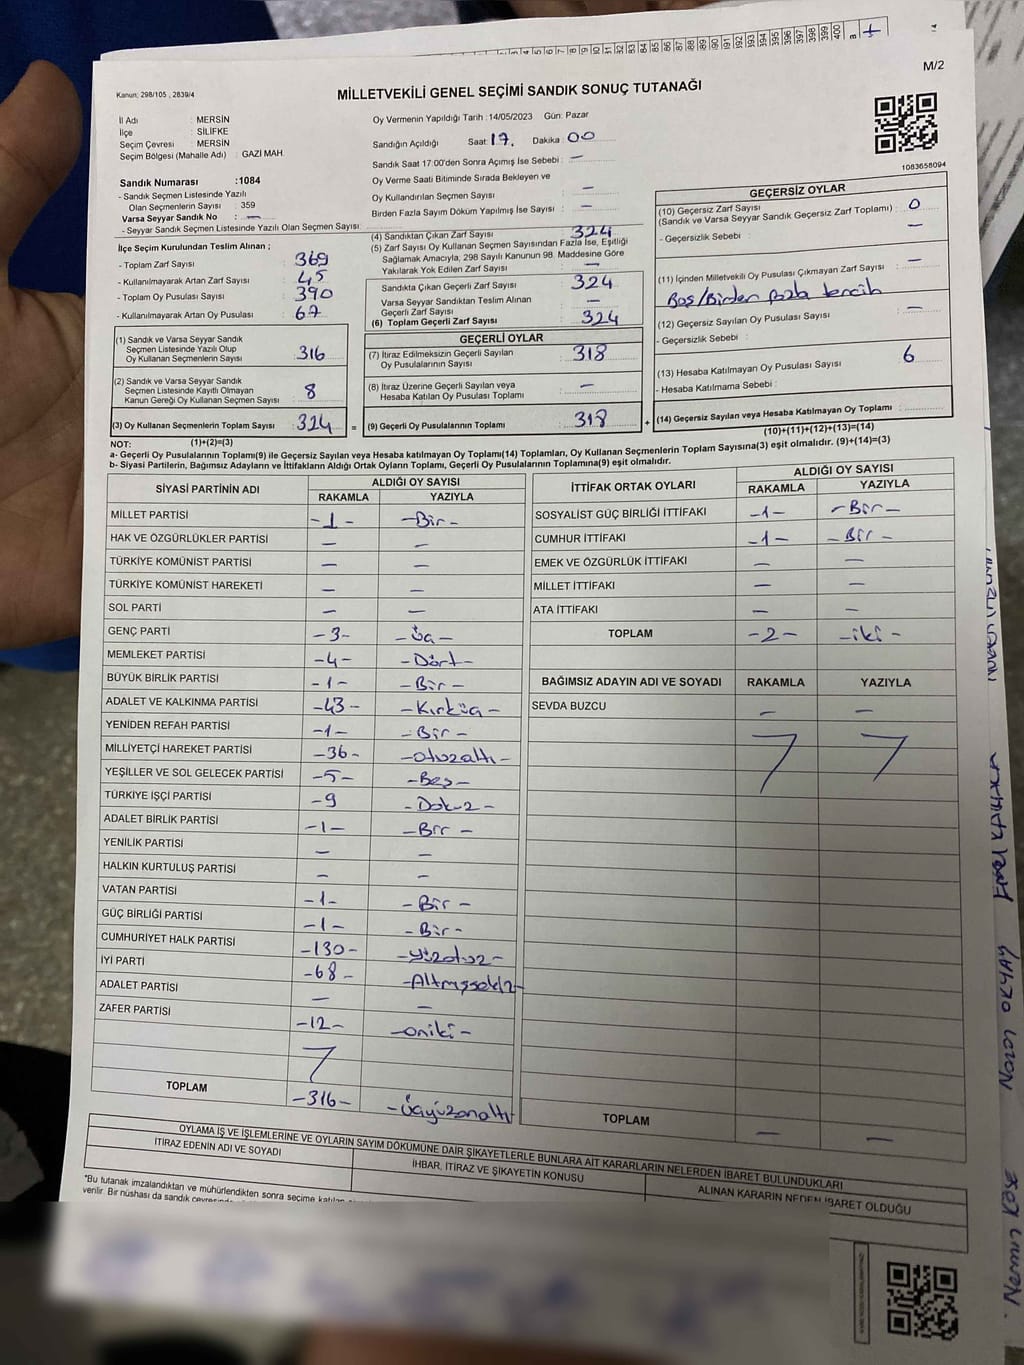 M/2
Kanun: 298/105 , 2839/4
MİLLETVEKİLİ GENEL SEÇİMİ SANDIK SONUÇ TUTANAĞI
İl Adı : MERSİN
İlçe : SİLİFKE
Seçim Çevresi : MERSİN
Seçim Bölgesi (Mahalle Adı) : GAZİ MAH.
Sandık Numarası :1084
- Sandık Seçmen Listesinde Yazılı
Olan Seçmenlerin Sayısı : 359
Varsa Seyyar Sandık No : —
- Seyyar Sandık Seçmen Listesinde Yazılı Olan Seçmen Sayısı:
İlçe Seçim Kurulundan Teslim Alınan ;
- Toplam Zarf Sayısı 369
- Kullanılmayarak Artan Zarf Sayısı 45
- Toplam Oy Pusulası Sayısı 390
- Kullanılmayarak Artan Oy Pusulası 67
(1) Sandık ve Varsa Seyyar Sandık
Seçmen Listesinde Yazılı Olup
Oy Kullanan Seçmenlerin Sayısı 316
(2) Sandık ve Varsa Seyyar Sandık
Seçmen Listesinde Kayıtlı Olmayan
Kanun Gereği Oy Kullanan Seçmen Sayısı 8
(3) Oy Kullanan Seçmenlerin Toplam Sayısı 324 =
Oy Vermenin Yapıldığı Tarih :14/05/2023 Gün: Pazar
Sandığın Açıldığı Saat: 17. Dakika : 00
Sandık Saat 17:00'den Sonra Açımış İse Sebebi : —
Oy Verme Saati Bitiminde Sırada Bekleyen ve
Oy Kullandırılan Seçmen Sayısı : —
Birden Fazla Sayım Döküm Yapılmış İse Sayısı : —
(4) Sandıktan Çıkan Zarf Sayısı : 324
(5) Zarf Sayısı Oy Kullanan Seçmen Sayısından Fazla İse, Eşitliği
Sağlamak Amacıyla, 298 Sayılı Kanunun 98. Maddesine Göre
Yakılarak Yok Edilen Zarf Sayısı : —
Sandıkta Çıkan Geçerli Zarf Sayısı : 324
Varsa Seyyar Sandıktan Teslim Alınan
Geçerli Zarf Sayısı : —
(6) Toplam Geçerli Zarf Sayısı : 324
GEÇERLİ OYLAR
(7) İtiraz Edilmeksizin Geçerli Sayılan
Oy Pusulalarının Sayısı : 318
(8) İtiraz Üzerine Geçerli Sayılan veya
Hesaba Katılan Oy Pusulası Toplamı : —
(9) Geçerli Oy Pusulalarının Toplamı : 318 +
1083658094
GEÇERSİZ OYLAR
(10) Geçersiz Zarf Sayısı
(Sandık ve Varsa Seyyar Sandık Geçersiz Zarf Toplamı) : 0
- Geçersizlik Sebebi : —
(11) İçinden Milletvekili Oy Pusulası Çıkmayan Zarf Sayısı : —
Boş/Birden fazla tercih
(12) Geçersiz Sayılan Oy Pusulası Sayısı : —
- Geçersizlik Sebebi :
(13) Hesaba Katılmayan Oy Pusulası Sayısı : 6
- Hesaba Katılmama Sebebi :
(14) Geçersiz Sayılan veya Hesaba Katılmayan Oy Toplamı :
(10)+(11)+(12)+(13)=(14)
NOT: (1)+(2)=(3)
a- Geçerli Oy Pusulaları Toplamı(9) ile Geçersiz Sayılan veya Hesaba katılmayan Oy Toplamı(14) Toplamları, Oy Kullanan Seçmenlerin Toplam Sayısına(3) eşit olmalıdır. (9)+(14)=(3)
b- Siyasi Partilerin, Bağımsız Adayların ve İttifakların Aldığı Ortak Oyların Toplamı, Geçerli Oy Pusulalarının Toplamına(9) eşit olmalıdır.
SİYASİ PARTİNİN ADI ALDIĞI OY SAYISI
RAKAMLA YAZIYLA
MİLLET PARTİSİ -1- -Bir-
HAK VE ÖZGÜRLÜKLER PARTİSİ — —
TÜRKİYE KOMÜNİST PARTİSİ — —
TÜRKİYE KOMÜNİST HAREKETİ — —
SOL PARTİ — —
GENÇ PARTİ -3- -Üç-
MEMLEKET PARTİSİ -4- -Dört-
BÜYÜK BİRLİK PARTİSİ -1- -Bir-
ADALET VE KALKINMA PARTİSİ -43- -Kırküç-
YENİDEN REFAH PARTİSİ -1- -Bir-
MİLLİYETÇİ HAREKET PARTİSİ -36- -otuzaltı-
YEŞİLLER VE SOL GELECEK PARTİSİ -5- -Beş-
TÜRKİYE İŞÇİ PARTİSİ -9 -Dokuz-
ADALET BİRLİK PARTİSİ -1- -Bir-
YENİLİK PARTİSİ — —
HALKIN KURTULUŞ PARTİSİ — —
VATAN PARTİSİ -1- -Bir-
GÜÇ BİRLİĞİ PARTİSİ -1- -Bir-
CUMHURİYET HALK PARTİSİ -130- -yüzotuz-
İYİ PARTİ -68- -Altmışsekiz-
ADALET PARTİSİ — —
ZAFER PARTİSİ -12- -oniki-
TOPLAM -316- -üçyüzonaltı
İTTİFAK ORTAK OYLARI ALDIĞI OY SAYISI
RAKAMLA YAZIYLA
SOSYALİST GÜÇ BİRLİĞİ İTTİFAKI -1- -Bir-
CUMHUR İTTİFAKI -1- -Bir-
EMEK VE ÖZGÜRLÜK İTTİFAKI — —
MİLLET İTTİFAKI — —
ATA İTTİFAKI — —
TOPLAM -2- -iki-
BAĞIMSIZ ADAYIN ADI VE SOYADI RAKAMLA YAZIYLA
SEVDA BUZCU — —
TOPLAM — —
OYLAMA İŞ VE İŞLEMLERİNE VE OYLARIN SAYIM DÖKÜMÜNE DAİR ŞİKAYETLERLE BUNLARA AİT KARARLARIN NELERDEN İBARET BULUNDUKLARI
İTİRAZ EDENİN ADI VE SOYADI İHBAR, İTİRAZ VE ŞİKAYETİN KONUSU ALINAN KARARIN NEDEN İBARET OLDUĞU
"Bu tutanak imzalandıktan ve mühürlendikten sonra seçime katılan
verilir. Bir nüshası da sandık çevresinde